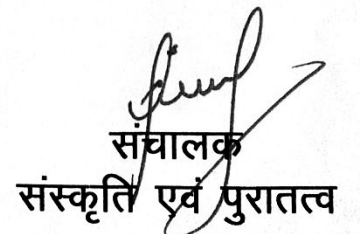 संचालक
संस्कृति एवं पुरातत्व